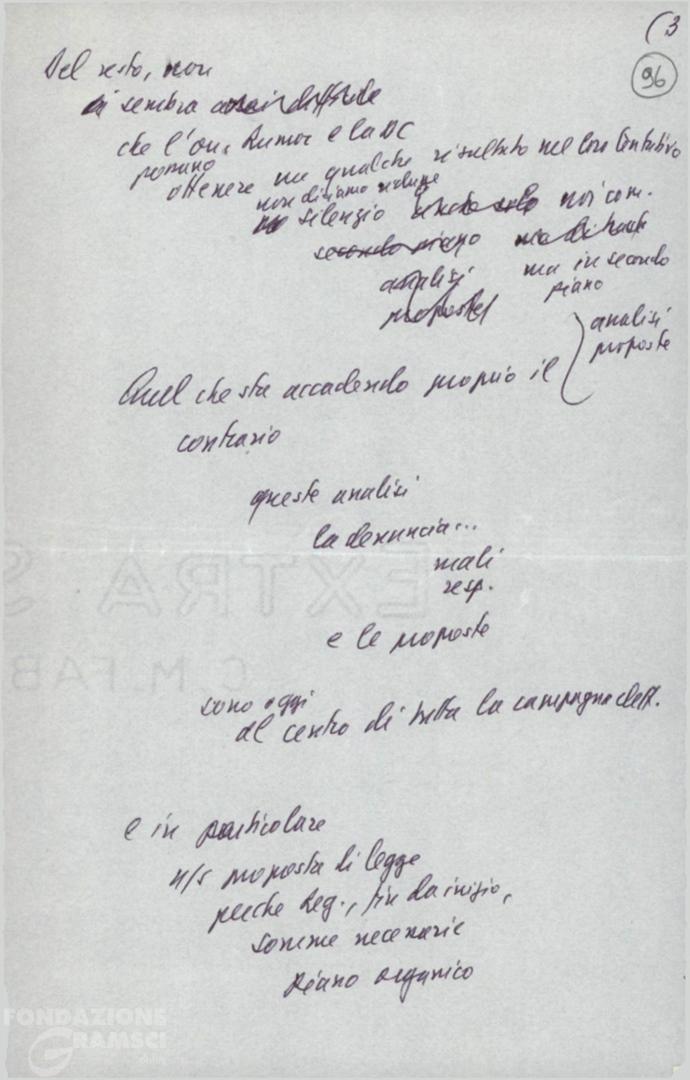 (3
96
Del resto, non
mi sembra assai difficile
che l'on. Rumor e la DC
possano
ottenere un qualche risultato nel loro tentativo
non diciamo ridurre
silenzio noi com.
secondo piano
analisi ma in secondo
proposte piano
analisi
proposte
Quel che sta accadendo proprio il
contrario
queste analisi
la denuncia...
mali
resp.
e le proposte
sono oggi
al centro di tutta la campagna elett.
e in particolare
n/s proposta di legge
perché Reg., fin da inizio,
somme necessarie
Piano organico
EXTRA S
C.M. FAB
FONDAZIONE
GRAMSCI